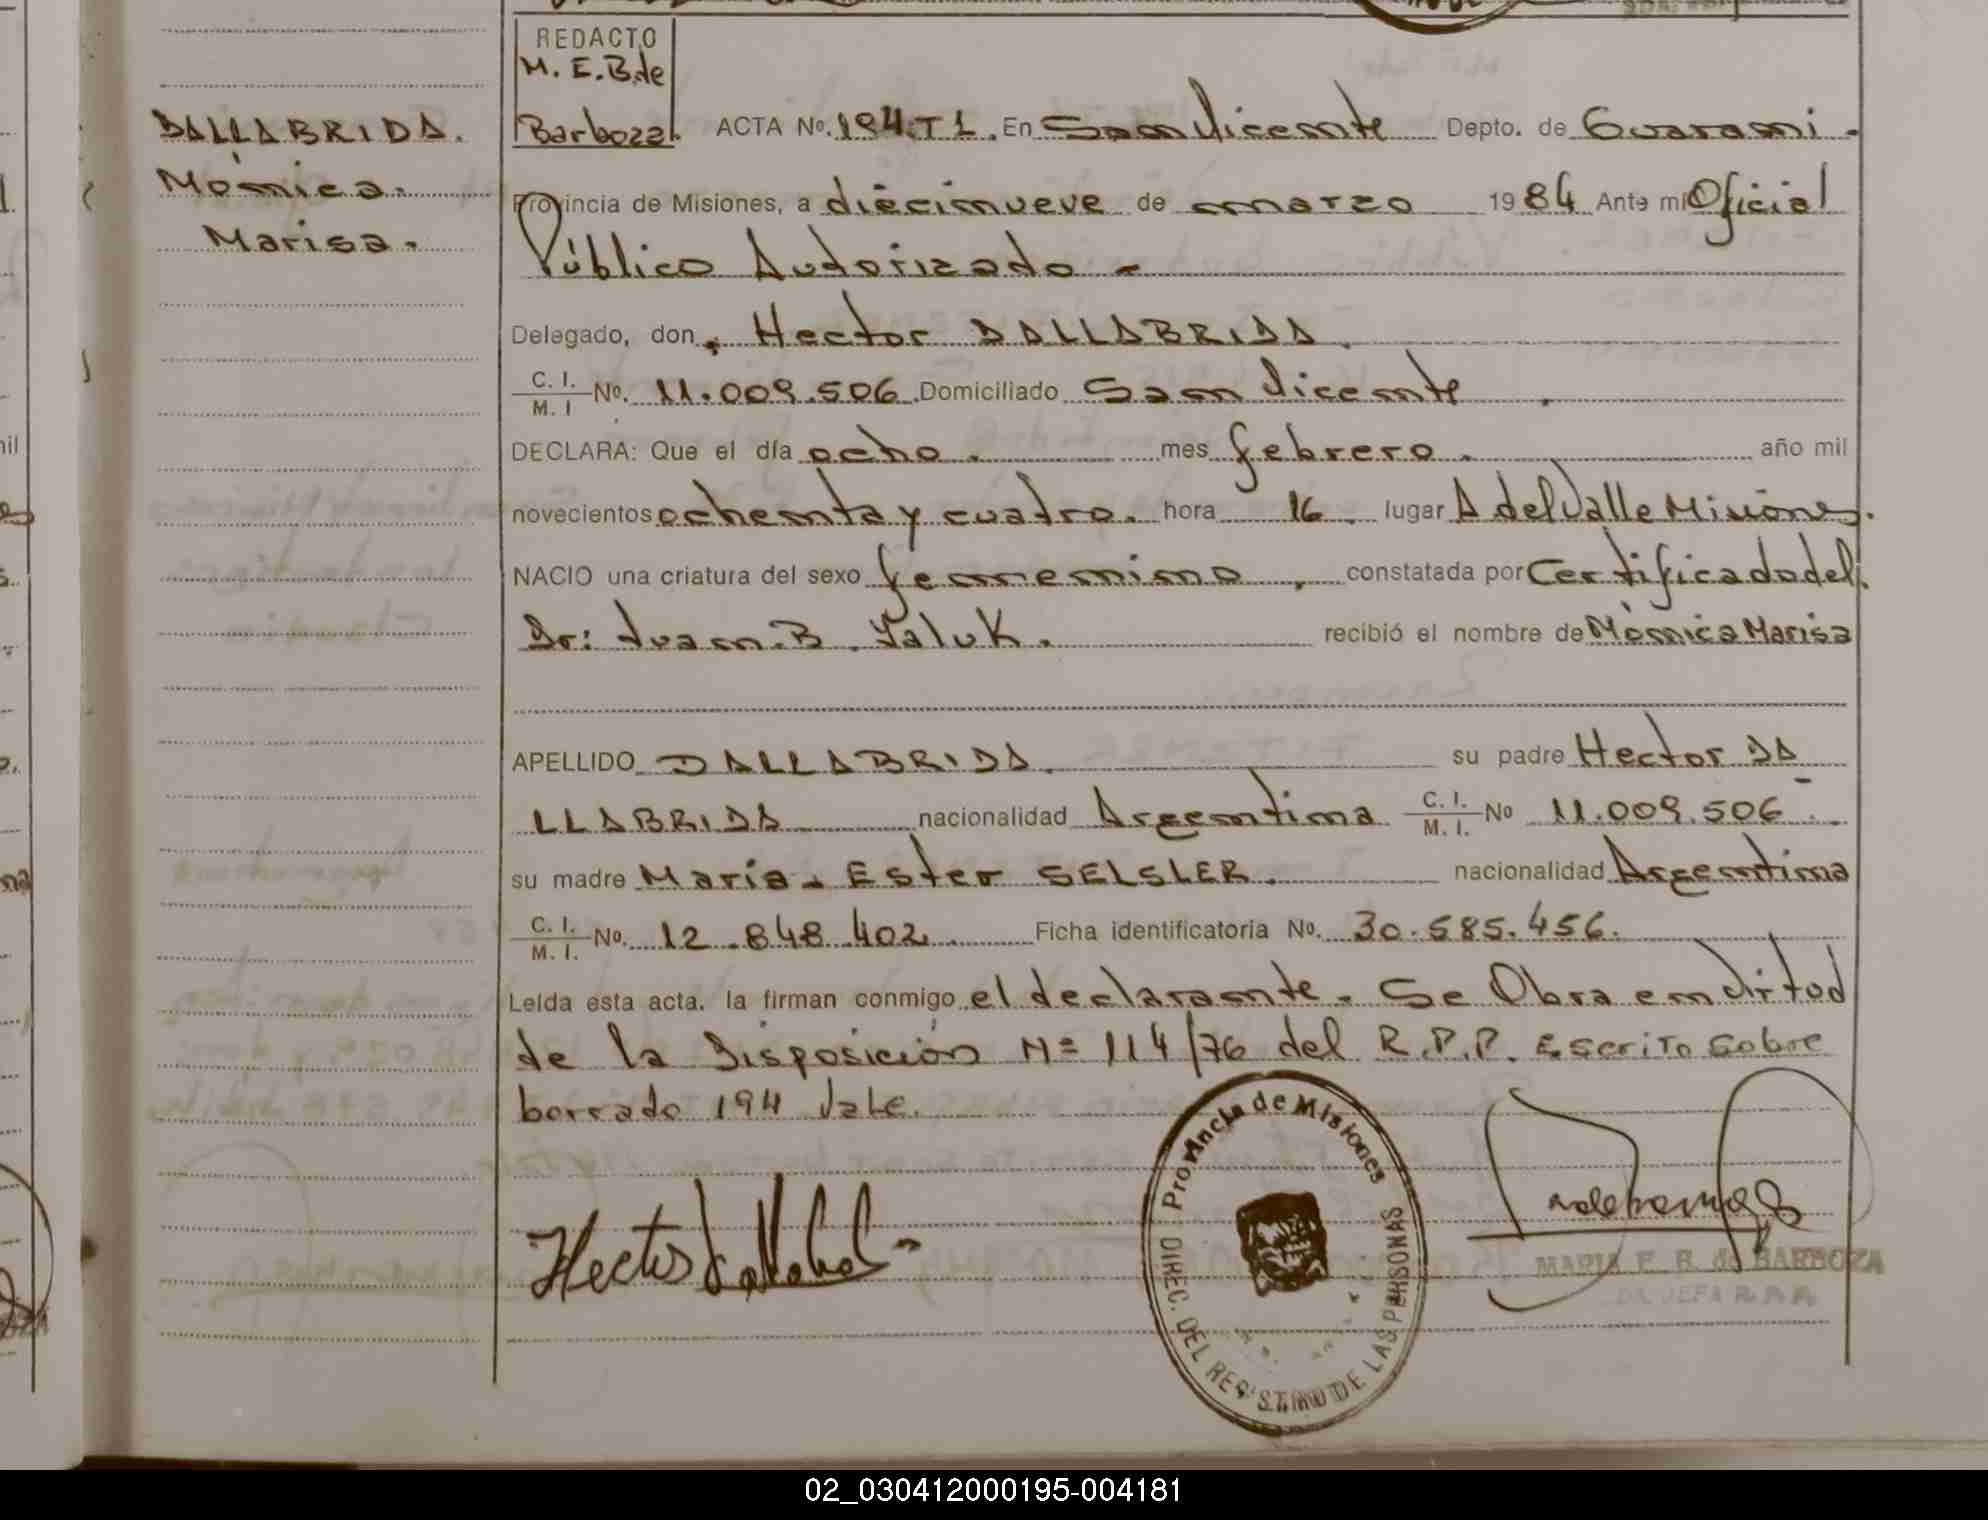 REDACTO
M. E. B. de
Barboza.
DALLABRIDA.
Mónica.
Marisa.
ACTA Nº. 194. T 1. En San Vicente Depto. de Guarani.
Provincia de Misiones, a diecinueve de marzo 1984 Ante mi Oficial
Público Autorizado -
Delegado, don. Hector DALLABRIDA.
C. I. / M. I Nº. 11.009.506. Domiciliado San Vicente.
DECLARA: Que el día ocho. mes febrero. año mil
novecientos ochenta y cuatro. hora 16. lugar A del Valle Misiones.
NACIO una criatura del sexo femenino, constatada por Certificado del.
Dr: Juan. B. Yaluk. recibió el nombre de Mónica Marisa
APELLIDO DALLABRIDA. su padre Hector DA
LLABRIDA nacionalidad Argentina C. I. / M. I. Nº 11.009.506.
su madre Maria. Ester SELSLER. nacionalidad Argentina
C. I. / M. I. Nº. 12.848.402. Ficha identificatoria Nº. 30.585.456.
Leída esta acta. la firman conmigo el declarante. Se Obra en virtud
de la Disposición Nº 114/76 del R.P.P. Escrito sobre
borrado 194 Vale.
Provincia de Misiones
DIREC. DEL REGISTRO DE LAS PERSONAS
MARIA E. B. de BARBOZA
02_030412000195-004181